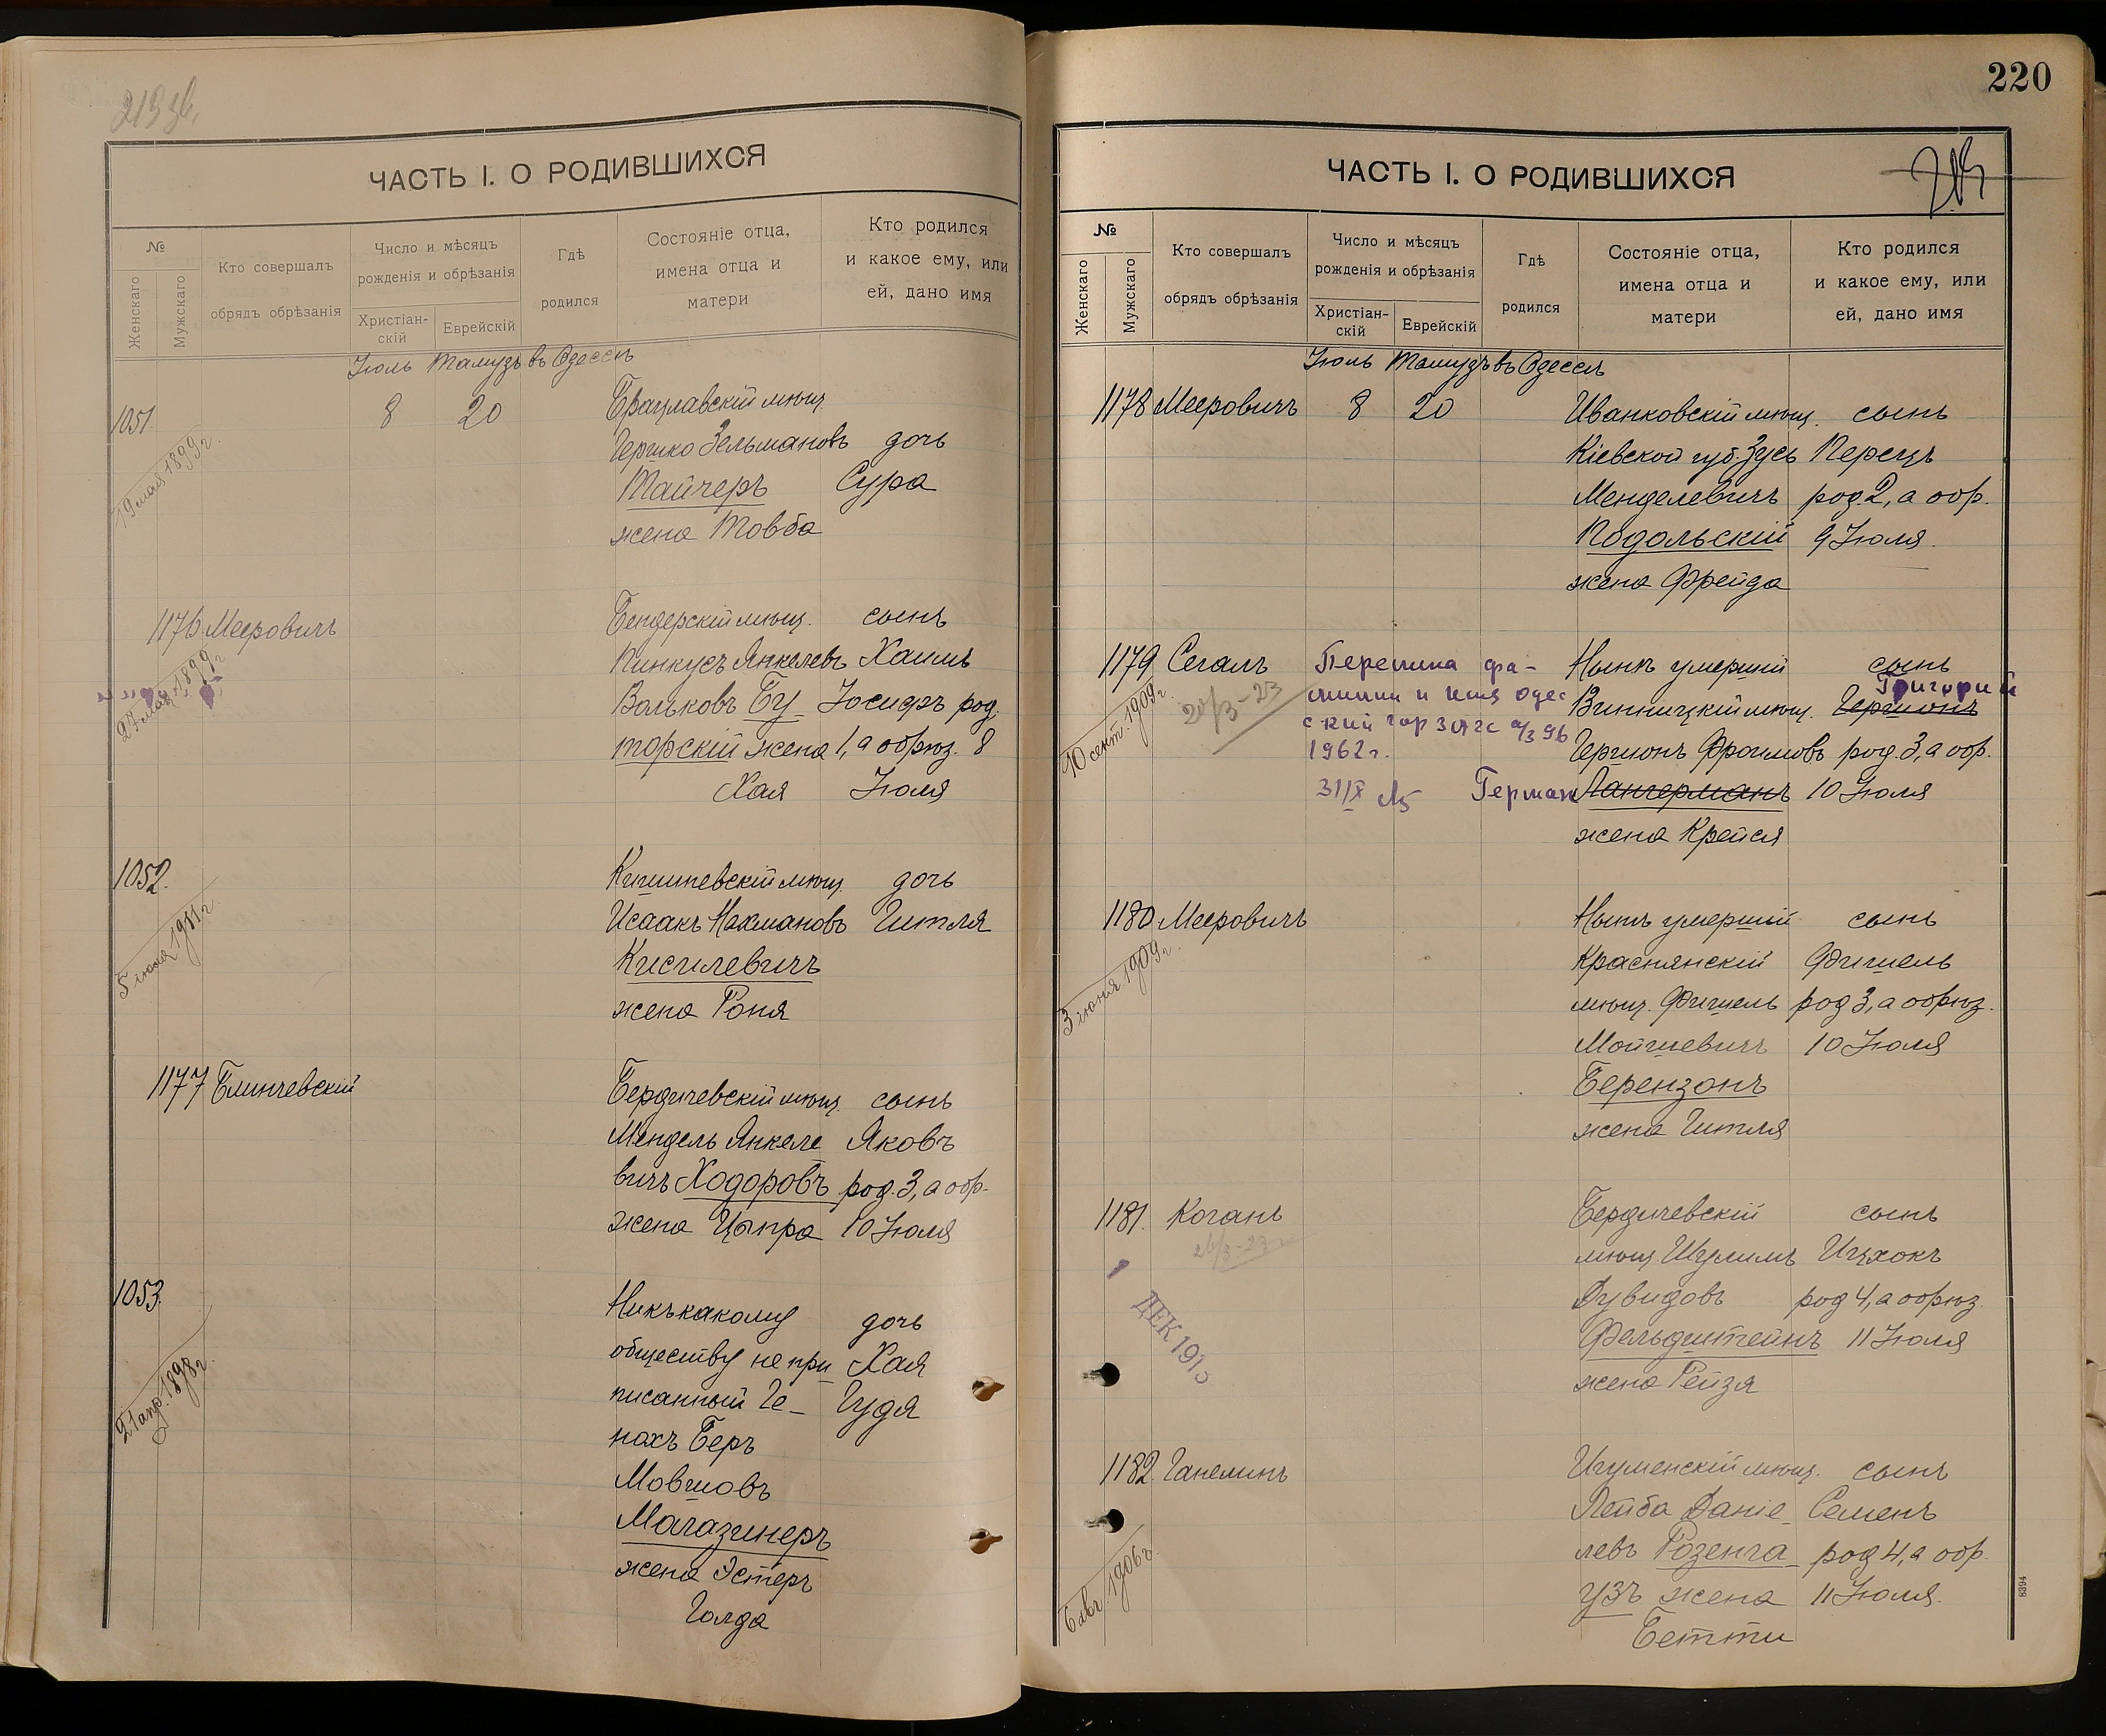 219 об.
ЧАСТЬ I. О РОДИВШИХСЯ
№
Женскаго
Мужскаго
Кто совершалъ
обрядъ обрѣзанія
Число и мѣсяцъ
рожденія и обрѣзанія
Христіан-
скій
Еврейскій
Гдѣ
родился
Состояніе отца,
имена отца и
матери
Кто родился
и какое ему, или
ей, дано имя
Іюль Тамузъ въ Одессѣ
1051. 8 20 Брацлавскій мѣщ.
Гершко Зельмановъ дочь
Тайчеръ Сура
жена Товба
19 мая 1899 г.
1176 Мееровичъ Бендерскій мѣщ. сынъ
Пинкусъ Янкелевъ Хаимъ
Вольковъ Бу Іосифъ род.
торскій жена 1, а обрѣз. 8
Хая Іюля
27 мая 1899 г.
1052. Кишиневскій мѣщ. дочь
Исаакъ Нахмановъ Гитля
Кисилевичъ
жена Роня
5 іюля 1911 г.
1177 Блинчевскій Бердичевскій мѣщ. сынъ
Мендель Янкеле Яковъ
вичъ Ходоровъ род. 3, а обр.
жена Ципра 10 Іюля
1053. Никъкакому дочь
обществу не при Хая
писанный Ге- Гудя
нахъ Беръ
Мовшовъ
Магазинеръ
жена Эстеръ
Голда
21 апр. 1898 г.
220
ЧАСТЬ I. О РОДИВШИХСЯ
№
Женскаго
Мужскаго
Кто совершалъ
обрядъ обрѣзанія
Число и мѣсяцъ
рожденія и обрѣзанія
Христіан-
скій
Еврейскій
Гдѣ
родился
Состояніе отца,
имена отца и
матери
Кто родился
и какое ему, или
ей, дано имя
Іюль Тамузъ въ Одессѣ
1178 Мееровичъ 8 20 Иванковскій мѣщ. сынъ
Кіевской губ. Зусь Перецъ
Менделевичъ род. 2, а обр.
Подольскій 9 Іюля
жена Фрейда
1179 Сегалъ Перемина фа- Нынѣ умершій сынъ
20/3-23 милии и имя одес Винницкій мѣщ. Гершонъ Григорий
ский гор загс а/з 96
1962 г. Гершонъ Фроимовъ род. 3, а обр.
31/X Герман Лангерманъ 10 Іюля
жена Крейся
10 сент. 1909 г.
1180 Мееровичъ Нынѣ умершій сынъ
Краснянскій Фишель
мѣщ. Фишель род 3, а обрѣз.
Мойшевичъ 10 Іюля
Берензонъ
жена Гитля
3 іюня 1909 г.
1181. Коганъ Бердичевскій сынъ
26/3-23 мѣщ. Шулимъ Ицхокъ
Дувидовъ род 4, а обрѣз.
Фельдштейнъ 11 Іюля
жена Рейзя
ДЕК 1913
1182. Ганелинъ Игуменскій мѣщ. сынъ
Лейба Даніе Семенъ
левъ Розенга род 4, а обр.
узъ жена 11 Іюля.
Бетти
6 авг. 1906 г.
8394